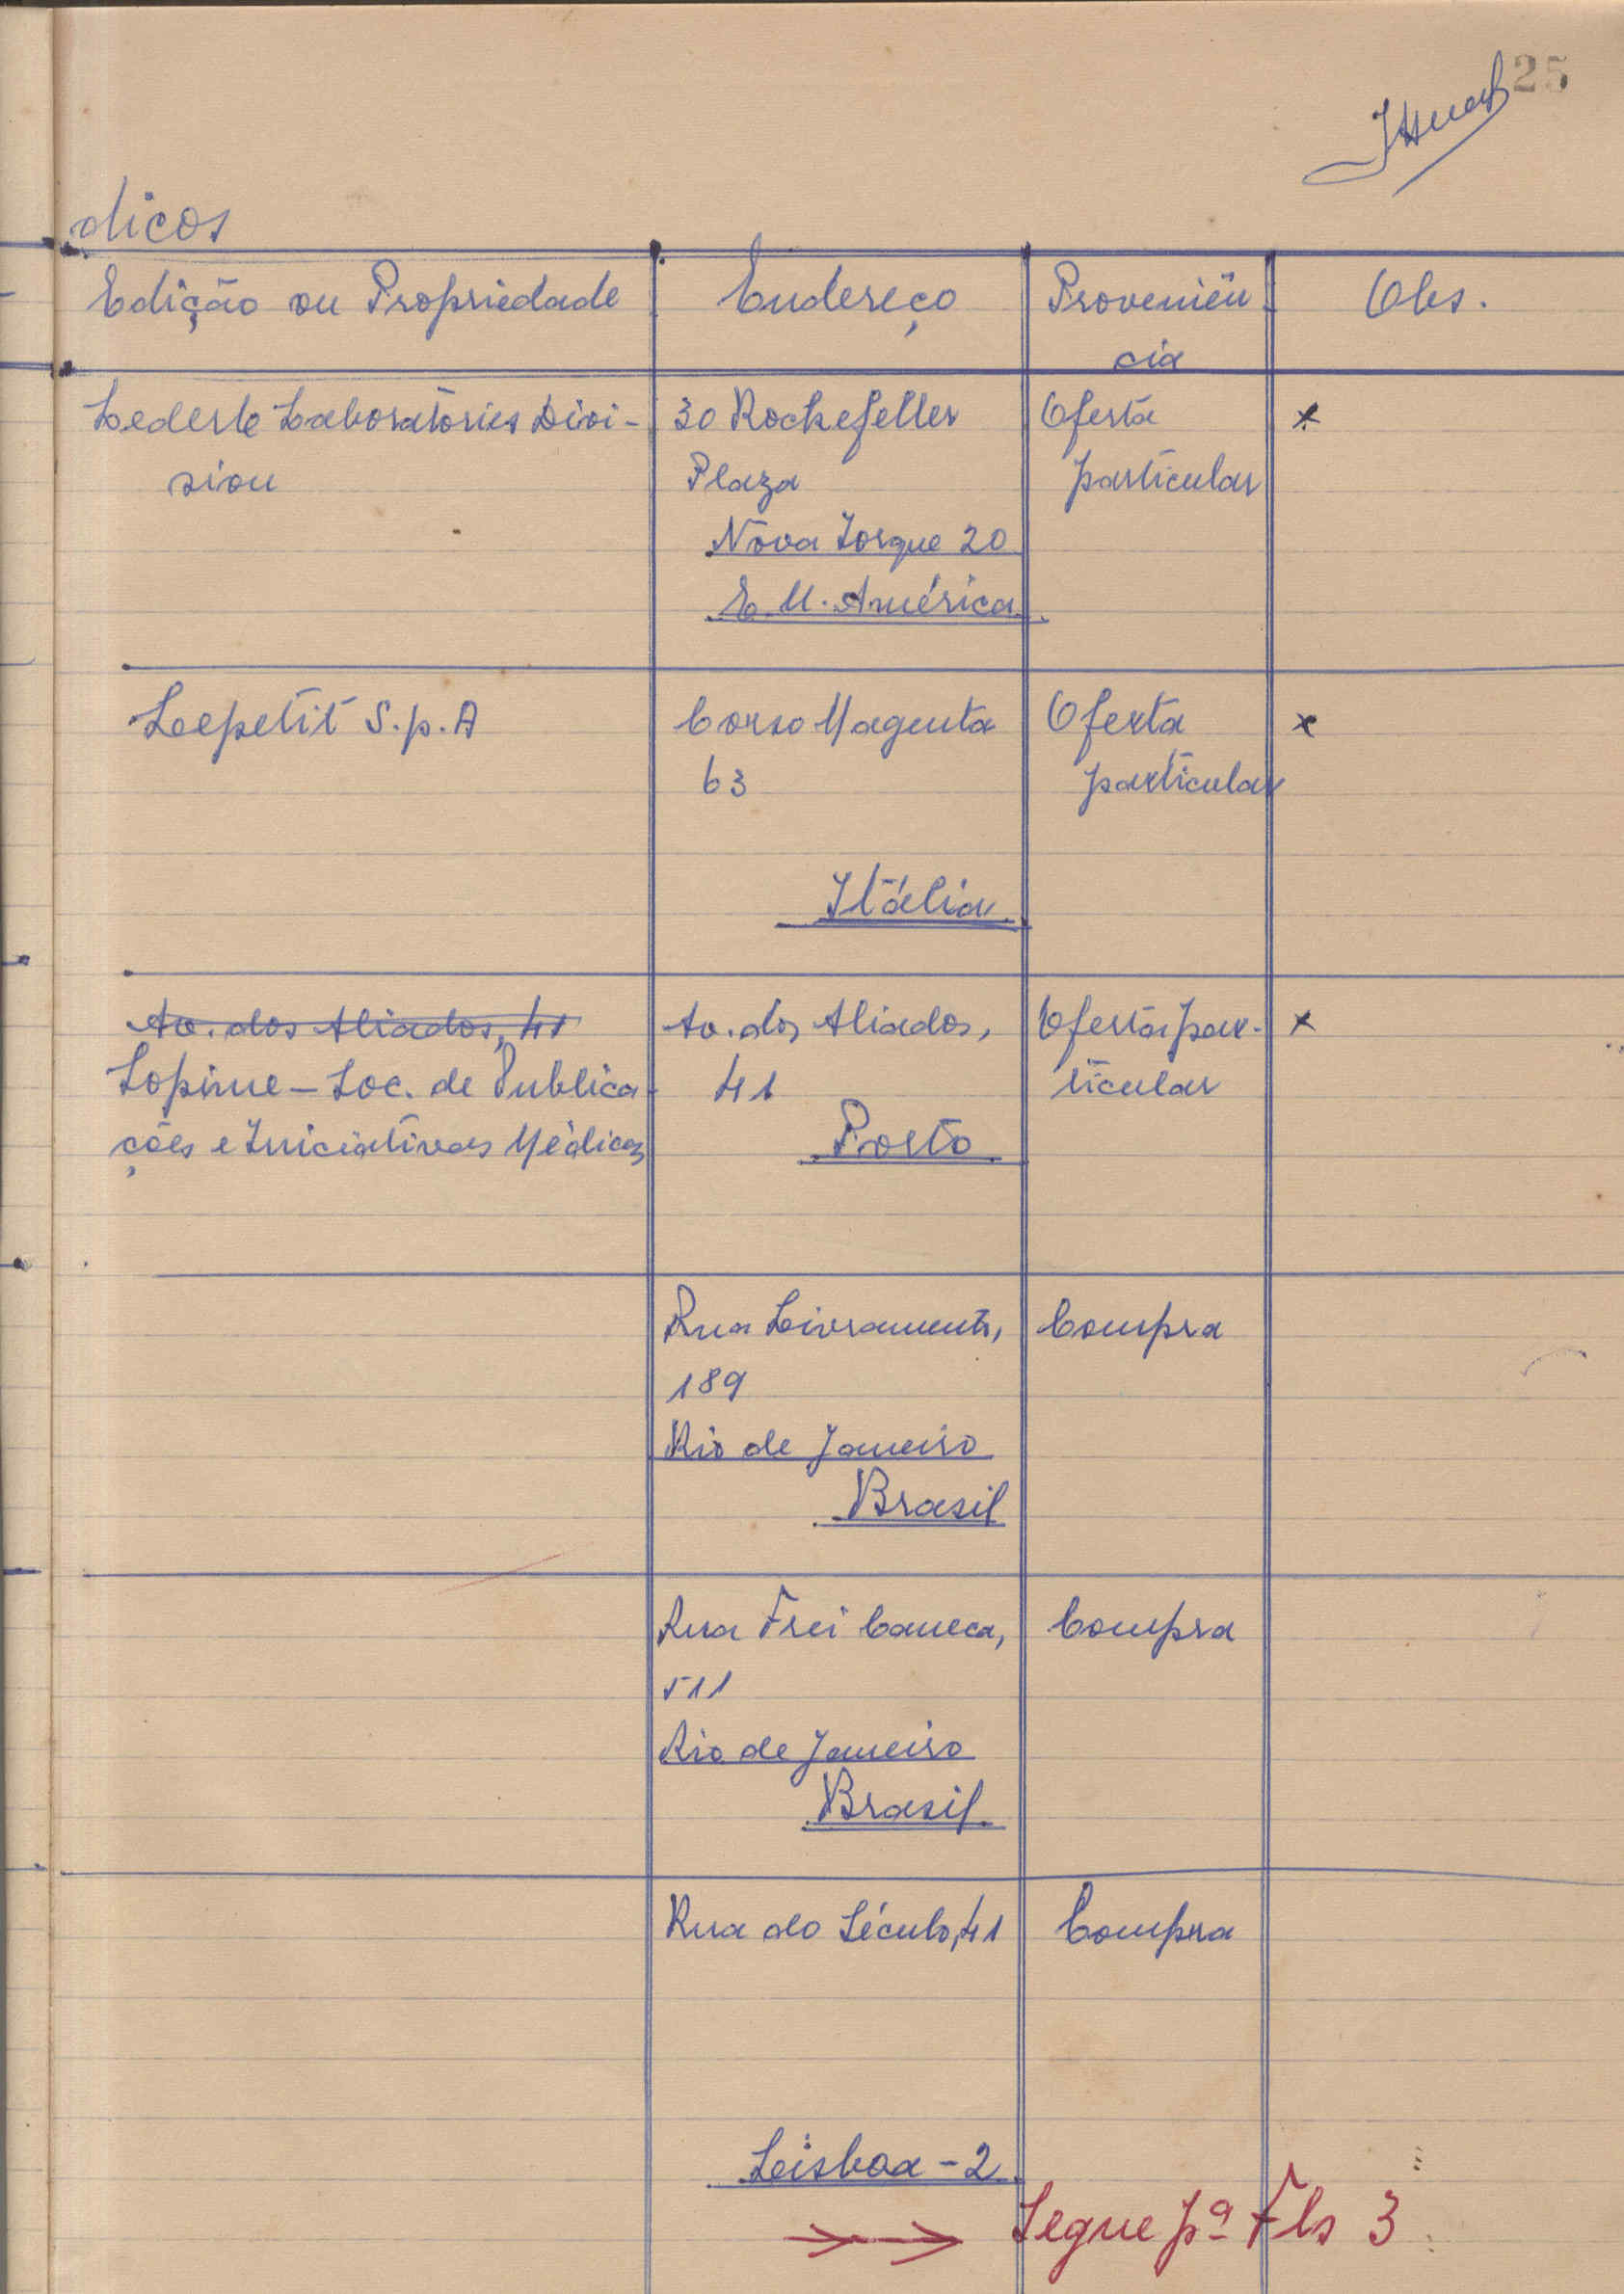 25
dicos
Edição ou Propriedade Endereço Proveniên-
cia Obs.
Lederle Laboratories Divi- 30 Rockefeller Oferta x
sion Plaza particular
Nova Iorque 20
E. U. América
Lepetit S.p.A Corso Magenta Oferta x
63 particular
Itália
Av. dos Aliados, 41 Av. dos Aliados, Oferta par- x
Sopime - Soc. de Publica- 41 ticular
ções e Iniciativas Médicas Porto
Rua Livramento, Compra
189
Rio de Janeiro
Brasil
Rua Frei Caneca, Compra
511
Rio de Janeiro
Brasil
Rua do Século, 41 Compra
Lisboa - 2
Segue pª Fls 3